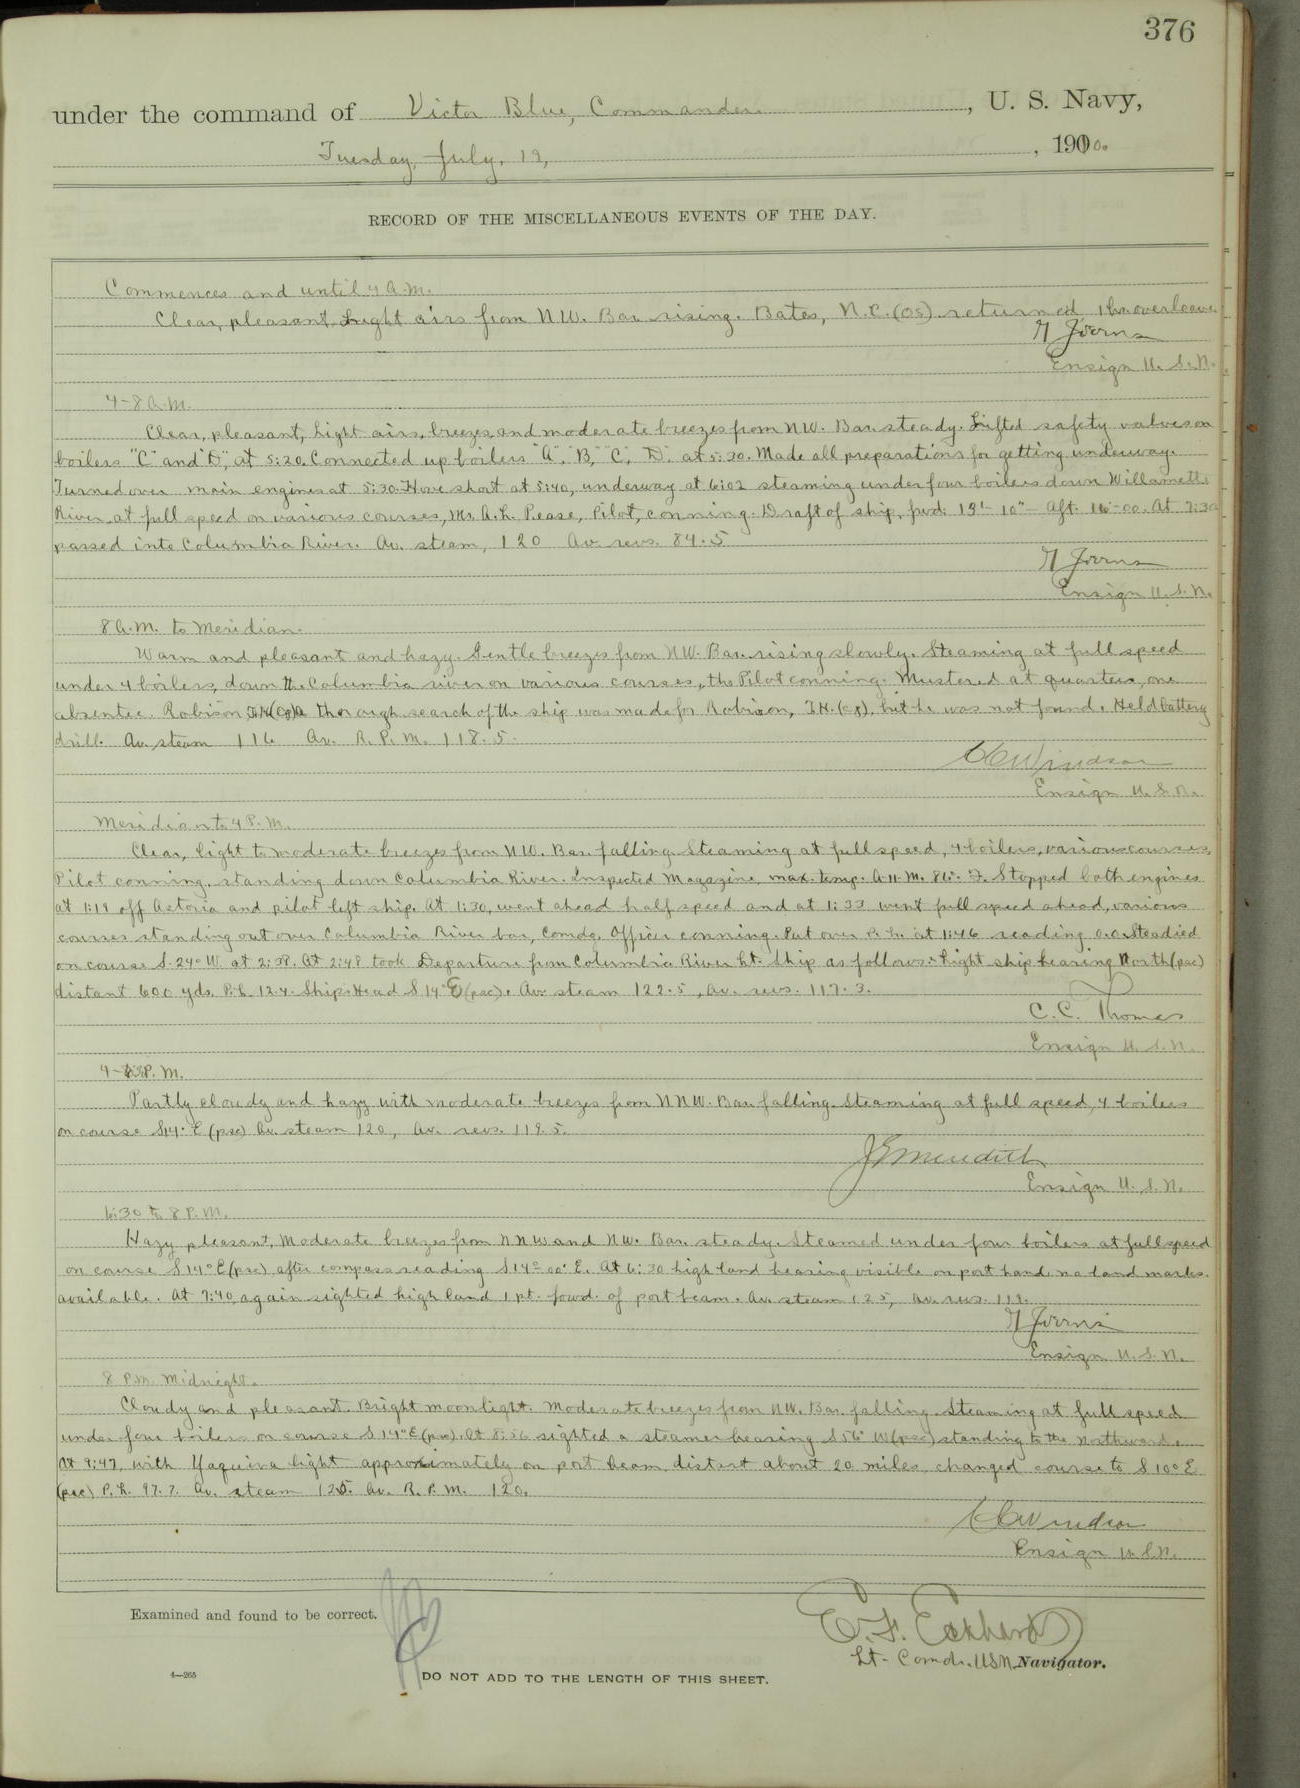 376
under the command of Victor Blue, Commander, U. S. Navy,
Tuesday, July, 19, 1910.
RECORD OF THE MISCELLANEOUS EVENTS OF THE DAY.
Commences and until 4 A.M.
Clear, pleasant. Light airs from NW. Bar. rising. Bates, N.C. (OS) returned 1 hr. overleave.
Ensign U. S. N.
4-8 A.M.
Clear, pleasant, light airs, breezes, and moderate breezes from NW. Bar. steady. Lifted safety valves on
boilers "C" and "D" at 5:20. Connected up boilers "A", "B", "C", "D". at 5:30. Made all preparations for getting underway.
Turned over main engines at 5:30. Hove short at 5:40, underway at 6:02 steaming under four boilers down Willamette
River at full speed on various courses, Mr. A.L. Pease, Pilot, conning. Draft of ship, fwd. 13'-10"- Aft. 16'-00. At 7:30
passed into Columbia River. Av. steam, 120 Av. revs. 84.5
Ensign U. S. N.
8 A.M. to Meridian.
Warm and pleasant and hazy. Gentle breezes from NW. Bar. rising slowly. Steaming at full speed
under 4 boilers, down the Columbia river on various courses, the Pilot conning. Mustered at quarters, one
absentee. Robison, J.H. A thorough search of the ship was made for Robison, J.H. but he was not found. Held battery
drill. Av. steam 116 Av. R. P. M. 118.5.
Windsor
Ensign U. S. N.
Meridian to 4 P.M.
Clear, light to moderate breezes from NW. Bar. falling. Steaming at full speed, 4 boilers, various courses,
Pilot conning, standing down Columbia River. Inspected Magazine, max. temp. A-11-M. 86°. F. Stopped both engines
at 1:19 off Astoria and pilot left ship. At 1:30, went ahead half speed and at 1:33 went full speed ahead, various
courses standing out over Columbia River bar, Comdg. Officer conning. Put over P.L. at 1:46 reading 0.0. Steadied
on course S. 24° W. at 2:38. At 2:48 took Departure from Columbia River Lt. Ship as follows:- Light ship bearing North (psc)
distant 600 yds. P.L. 12.4. Ships Head S 14° E (psc). Av. steam 122.5, av. revs. 117.3.
C. C. Thomas
Ensign U. S. N.
4- P. M.
Partly cloudy and hazy with moderate breezes from NNW. Bar. falling. Steaming at full speed, 4 boilers
on course S14° E (psc) Av. steam 120, Av. revs. 119.5.
Meredith
Ensign U. S. N.
6:30 to 8 P.M.
Hazy, pleasant, Moderate breezes from NNW and NW. Bar. steady. Steamed under four boilers at full speed
on course S 14° E (psc) after compass reading S 14° 00' E. At 6:30 high land bearing visible on port hand, no land marks
available. At 7:40, again sighted high land 1 pt. forwd. of port beam. Av. steam 125, av. revs. 119.
Ensign U. S. N.
8 P.M. Midnight.
Cloudy and pleasant. Bright moonlight. Moderate breezes from NW. Bar. falling. Steaming at full speed
under four boilers on course S 14° E (psc). At 8:56 sighted a steamer bearing S 56° W (psc) standing to the northward.
At 9:47, with Yaquina light approximately on port beam, distant about 20 miles, changed course to S 10° E
(psc) P.L. 97.7. Av. steam 125. Av. R. P. M. 120.
Windsor
Ensign U.S.N.
Examined and found to be correct.
Lt- Comdr. USN. Navigator.
4-265
DO NOT ADD TO THE LENGTH OF THIS SHEET.